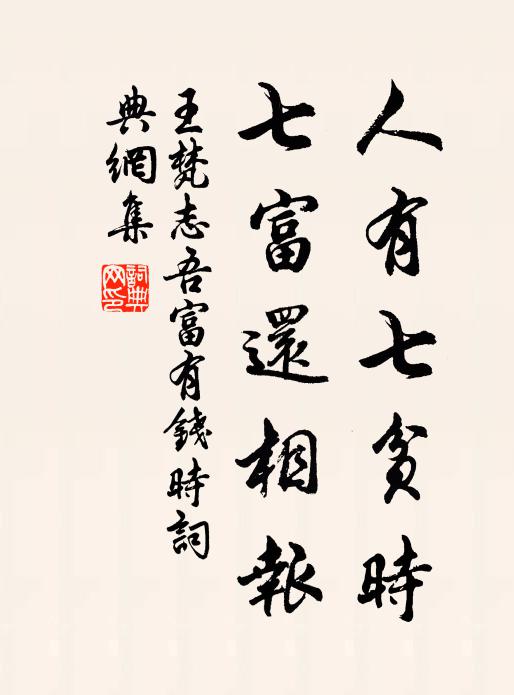 人有七貧時
七富還相報
王梵志吾富有錢時詞
典網集
詞典
网印